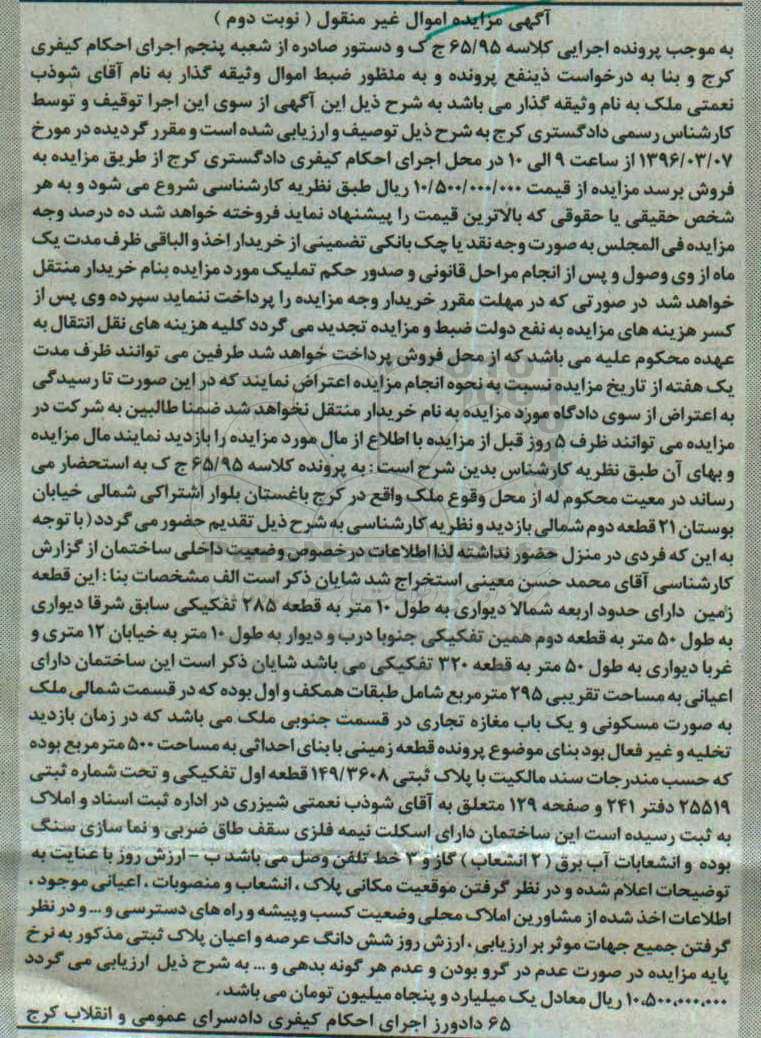 آگهی مزایده اموال غیر منقول ( نوبت دوم )
به موجب پرونده اجرایی کلاسه ۶۵/۹۵ ج ک و دستور صادره از شعبه پنجم اجرای احکام کیفری
کرج و بنا به درخواست ذینفع پرونده و به منظور ضبط اموال وثیقه گذار به نام آقای شوذب
نعمتی ملک به نام وثیقه گذار می باشد به شرح ذیل این آگهی از سوی این اجرا توقیف و توسط
کارشناس رسمی دادگستری کرج به شرح ذیل توصیف و ارزیابی شده است و مقرر گردیده در مورخ
۱۳۹۶/۰۳/۰۷ از ساعت ۹ الی ۱۰ در محل اجرای احکام کیفری دادگستری کرج از طریق مزایده به
فروش برسد مزایده از قیمت ۱۰/۵۰۰/۰۰۰/۰۰۰ ریال طبق نظریه کارشناسی شروع می شود و به هر
شخص حقیقی یا حقوقی که بالاترین قیمت را پیشنهاد نماید فروخته خواهد شد ده درصد وجه
مزایده فی المجلس به صورت وجه نقد یا چک بانکی تضمینی از خریدار اخذ و الباقی ظرف مدت یک
ماه از وی وصول و پس از انجام مراحل قانونی و صدور حکم تملیک مورد مزایده بنام خریدار منتقل
خواهد شد در صورتی که در مهلت مقرر خریدار وجه مزایده را پرداخت ننماید سپرده وی پس از
کسر هزینه های مزایده به نفع دولت ضبط و مزایده تجدید می گردد کلیه هزینه های نقل انتقال به
عهده محکوم علیه می باشد که از محل فروش پرداخت خواهد شد طرفین می توانند ظرف مدت
یک هفته از تاریخ مزایده نسبت به نحوه انجام مزایده اعتراض نمایند که در این صورت تا رسیدگی
به اعتراض از سوی دادگاه مورد مزایده به نام خریدار منتقل نخواهد شد ضمنا طالبین به شرکت در
مزایده می توانند ظرف ۵ روز قبل از مزایده با اطلاع از مال مورد مزایده را بازدید نمایند مال مزایده
و بهای آن طبق نظریه کارشناس بدین شرح است : به پرونده کلاسه ۶۵/۹۵ ج ک به استحضار می
رساند در معیت محکوم له از محل وقوع ملک واقع در کرج باغستان بلوار اشتراکی شمالی خیابان
بوستان ۲۱ قطعه دوم شمالی بازدید و نظریه کارشناسی به شرح ذیل تقدیم حضور می گردد ( با توجه
به این که فردی در منزل حضور نداشته لذا اطلاعات درخصوص وضعیت داخلی ساختمان از گزارش
کارشناسی آقای محمد حسن معینی استخراج شد شایان ذکر است الف مشخصات بنا : این قطعه
زمین دارای حدود اربعه شمالا دیواری به طول ۱۰ متر به قطعه ۲۸۵ تفکیکی سابق شرقا دیواری
به طول ۵۰ متر به قطعه دوم همین تفکیکی جنوبا درب و دیوار به طول ۱۰ متر به خیابان ۱۲ متری و
غربا دیواری به طول ۵۰ متر به قطعه ۳۲۰ تفکیکی می باشد شایان ذکر است این ساختمان دارای
اعیانی به مساحت تقریبی ۲۹۵ مترمربع شامل طبقات همکف و اول بوده که در قسمت شمالی ملک
به صورت مسکونی و یک باب مغازه تجاری در قسمت جنوبی ملک می باشد که در زمان بازدید
تخلیه و غیر فعال بود بنای موضوع پرونده قطعه زمینی با بنای احداثی به مساحت ۵۰۰ مترمربع بوده
که حسب مندرجات سند مالکیت با پلاک ثبتی ۱۴۹/۳۶۰۸ قطعه اول تفکیکی و تحت شماره ثبتی
۲۵۵۱۹ دفتر ۲۴۱ و صفحه ۱۲۹ متعلق به آقای شوذب نعمتی شیزری در اداره ثبت اسناد و املاک
به ثبت رسیده است این ساختمان دارای اسکلت نیمه فلزی سقف طاق ضربی و نما سازی سنگ
بوده و انشعابات آب برق ( ۲ انشعاب ) گاز و ۳ خط تلفن وصل می باشد ب - ارزش روز با عنایت به
توضیحات اعلام شده و در نظر گرفتن موقعیت مکانی پلاک ، انشعاب و منصوبات ، اعیانی موجود ،
اطلاعات اخذ شده از مشاورین املاک محلی وضعیت کسب و پیشه و راه های دسترسی و ... و در نظر
گرفتن جمیع جهات موثر بر ارزیابی ، ارزش روز شش دانگ عرصه و اعیان پلاک ثبتی مذکور به نرخ
پایه مزایده در صورت عدم در گرو بودن و عدم هر گونه بدهی و ... به شرح ذیل ارزیابی می گردد
۱۰,۵۰۰,۰۰۰,۰۰۰ ریال معادل یک میلیارد و پنجاه میلیون تومان می باشد .
۶۵ دادورز اجرای احکام کیفری دادسرای عمومی و انقلاب کرج